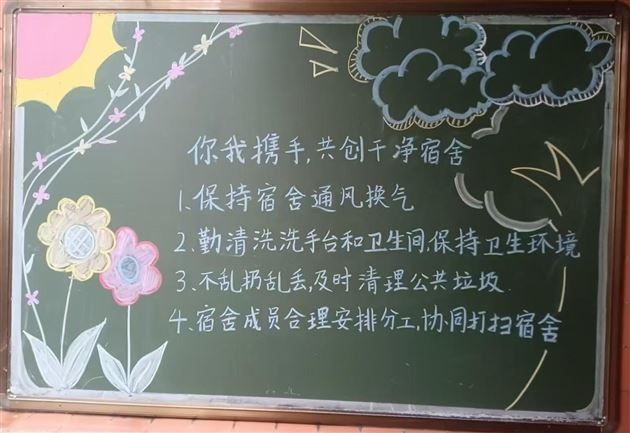 你我携手,共创干净宿舍
1.保持宿舍通风换气
2.勤清洗洗手台和卫生间,保持卫生环境
3.不乱扔乱丢,及时清理公共垃圾.
4.宿舍成员合理安排分工,协同打扫宿舍